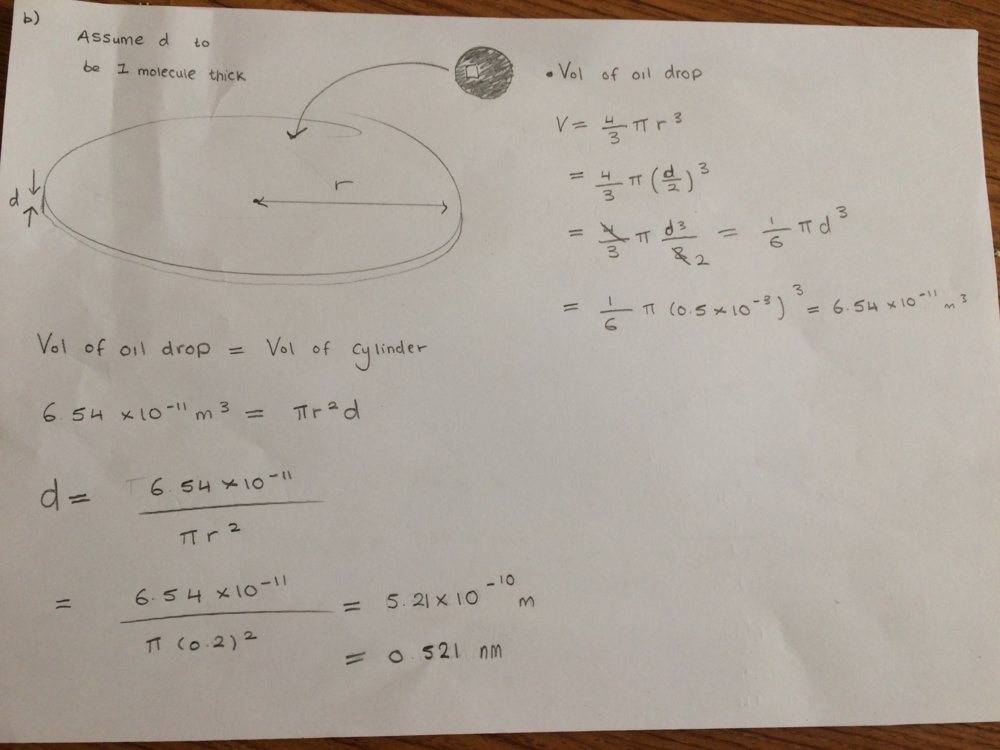 b)
Assume d to
be 1 molecule thick
d
r
• Vol of oil drop
V = 4/3 π r³
= 4/3 π (d/2)³
= 4/3 π d³/8 2 = 1/6 π d³
= 1/6 π (0.5 × 10⁻³)³ = 6.54 × 10⁻¹¹ m³
Vol of oil drop = Vol of cylinder
6.54 × 10⁻¹¹ m³ = πr²d
d = 6.54 × 10⁻¹¹ / πr²
= 6.54 × 10⁻¹¹ / π (0.2)² = 5.21 × 10⁻¹⁰ m
= 0.521 nm